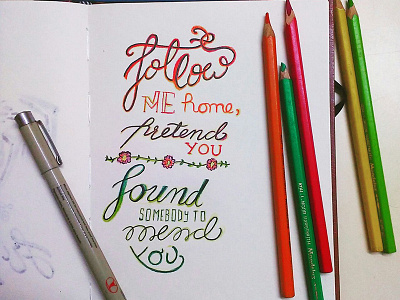 follow
ME home,
pretend
YOU
found
SOMEBODY TO
mend
YOU